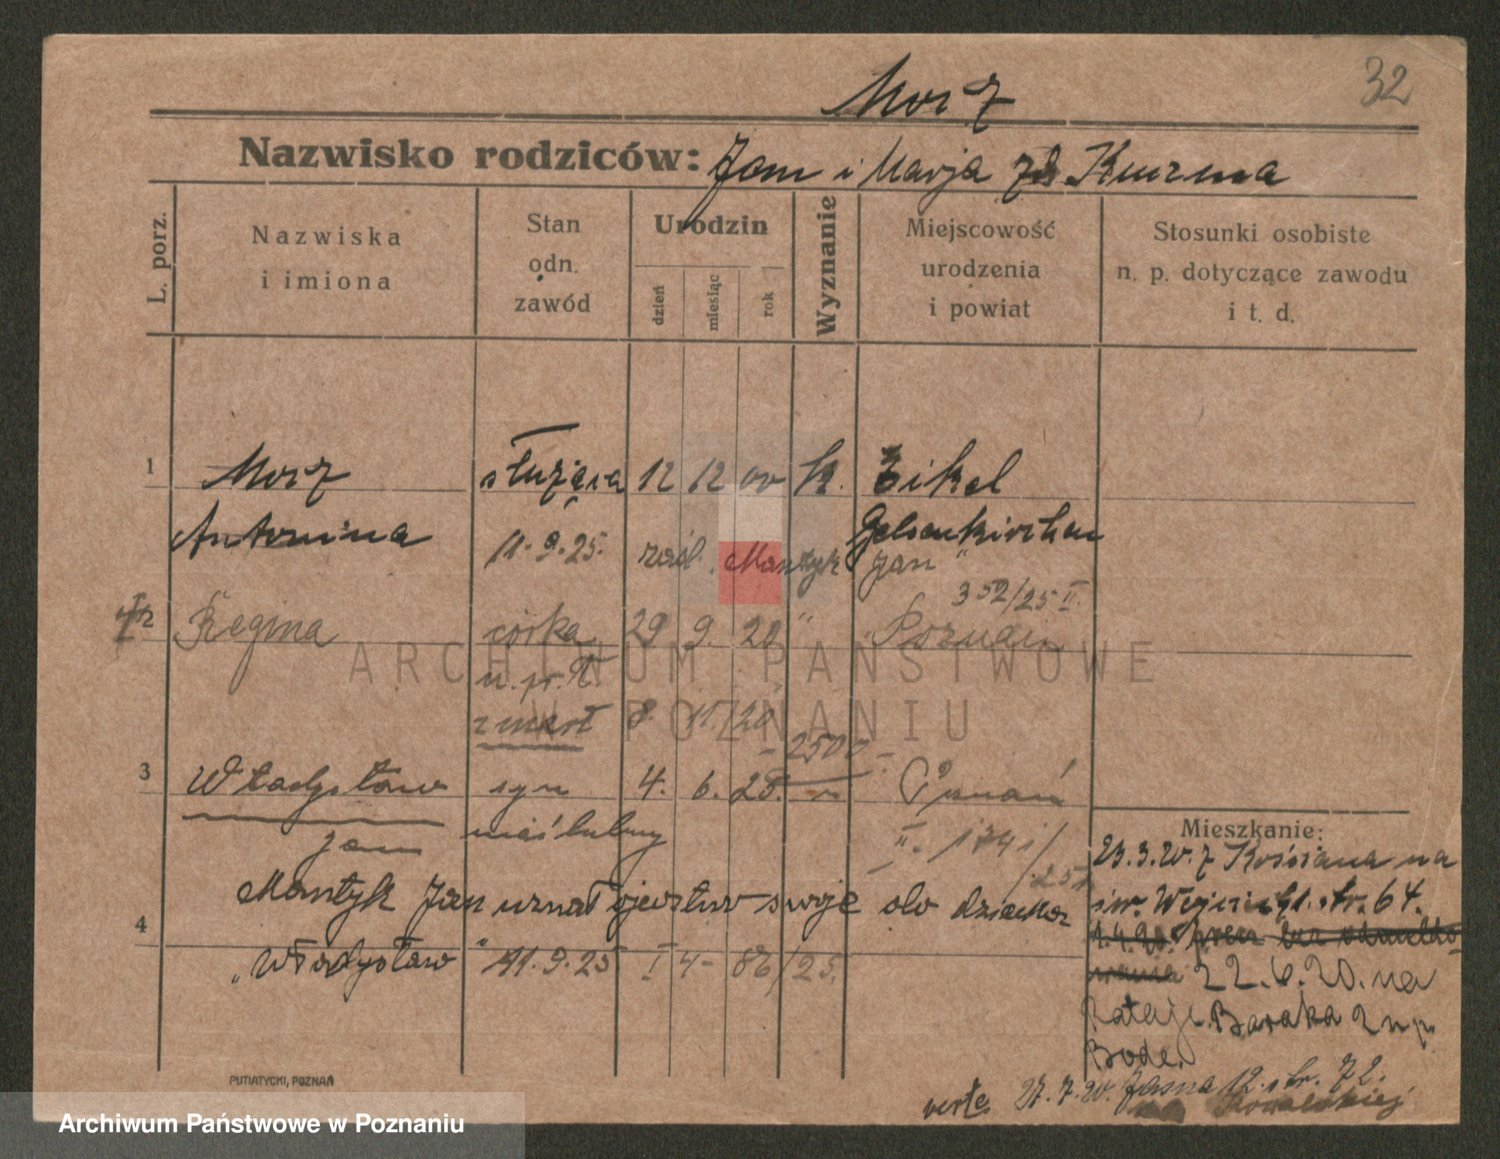 32
Morz
Nazwisko rodziców: Jan i Marja zd Kuzma
L. porz.
Nazwiska
i imiona
Stan
odn.
zawód
Urodzin
dzień
miesiąc
rok
Wyznanie
Miejscowość
urodzenia
i powiat
Stosunki osobiste
n. p. dotyczące zawodu
i t. d.
1 Morz służąca 12 12 00 k. Eikel
Antonina 11.9.25. zaśl. Mantyk Jan Gelsenkirchen
352/25 II.
2 Regina córka 29 9. 20 " Poznań
n. pr. K.
zmarł 8. 11. 20
- 2500 -
3 Władysław syn 4. 6. 25. Poznań
Jan nieślubny II. 1741/
25
Mantyk Jan uznał ojcostwo swoje do dziecka
4
"Władysław" 11.9.25 I 4- 86/25.
Mieszkanie:
23.3.20. z Kościana na
św. Wojciech str. 64.
22.6.20. na
Rataje. Baraka
Bode.
verte 27.7.20. Jasna 12. str. 72.
PUTIATYCKI, POZNAŃ
ARCHIWUM PAŃSTWOWE
W POZNANIU
Archiwum Państwowe w Poznaniu